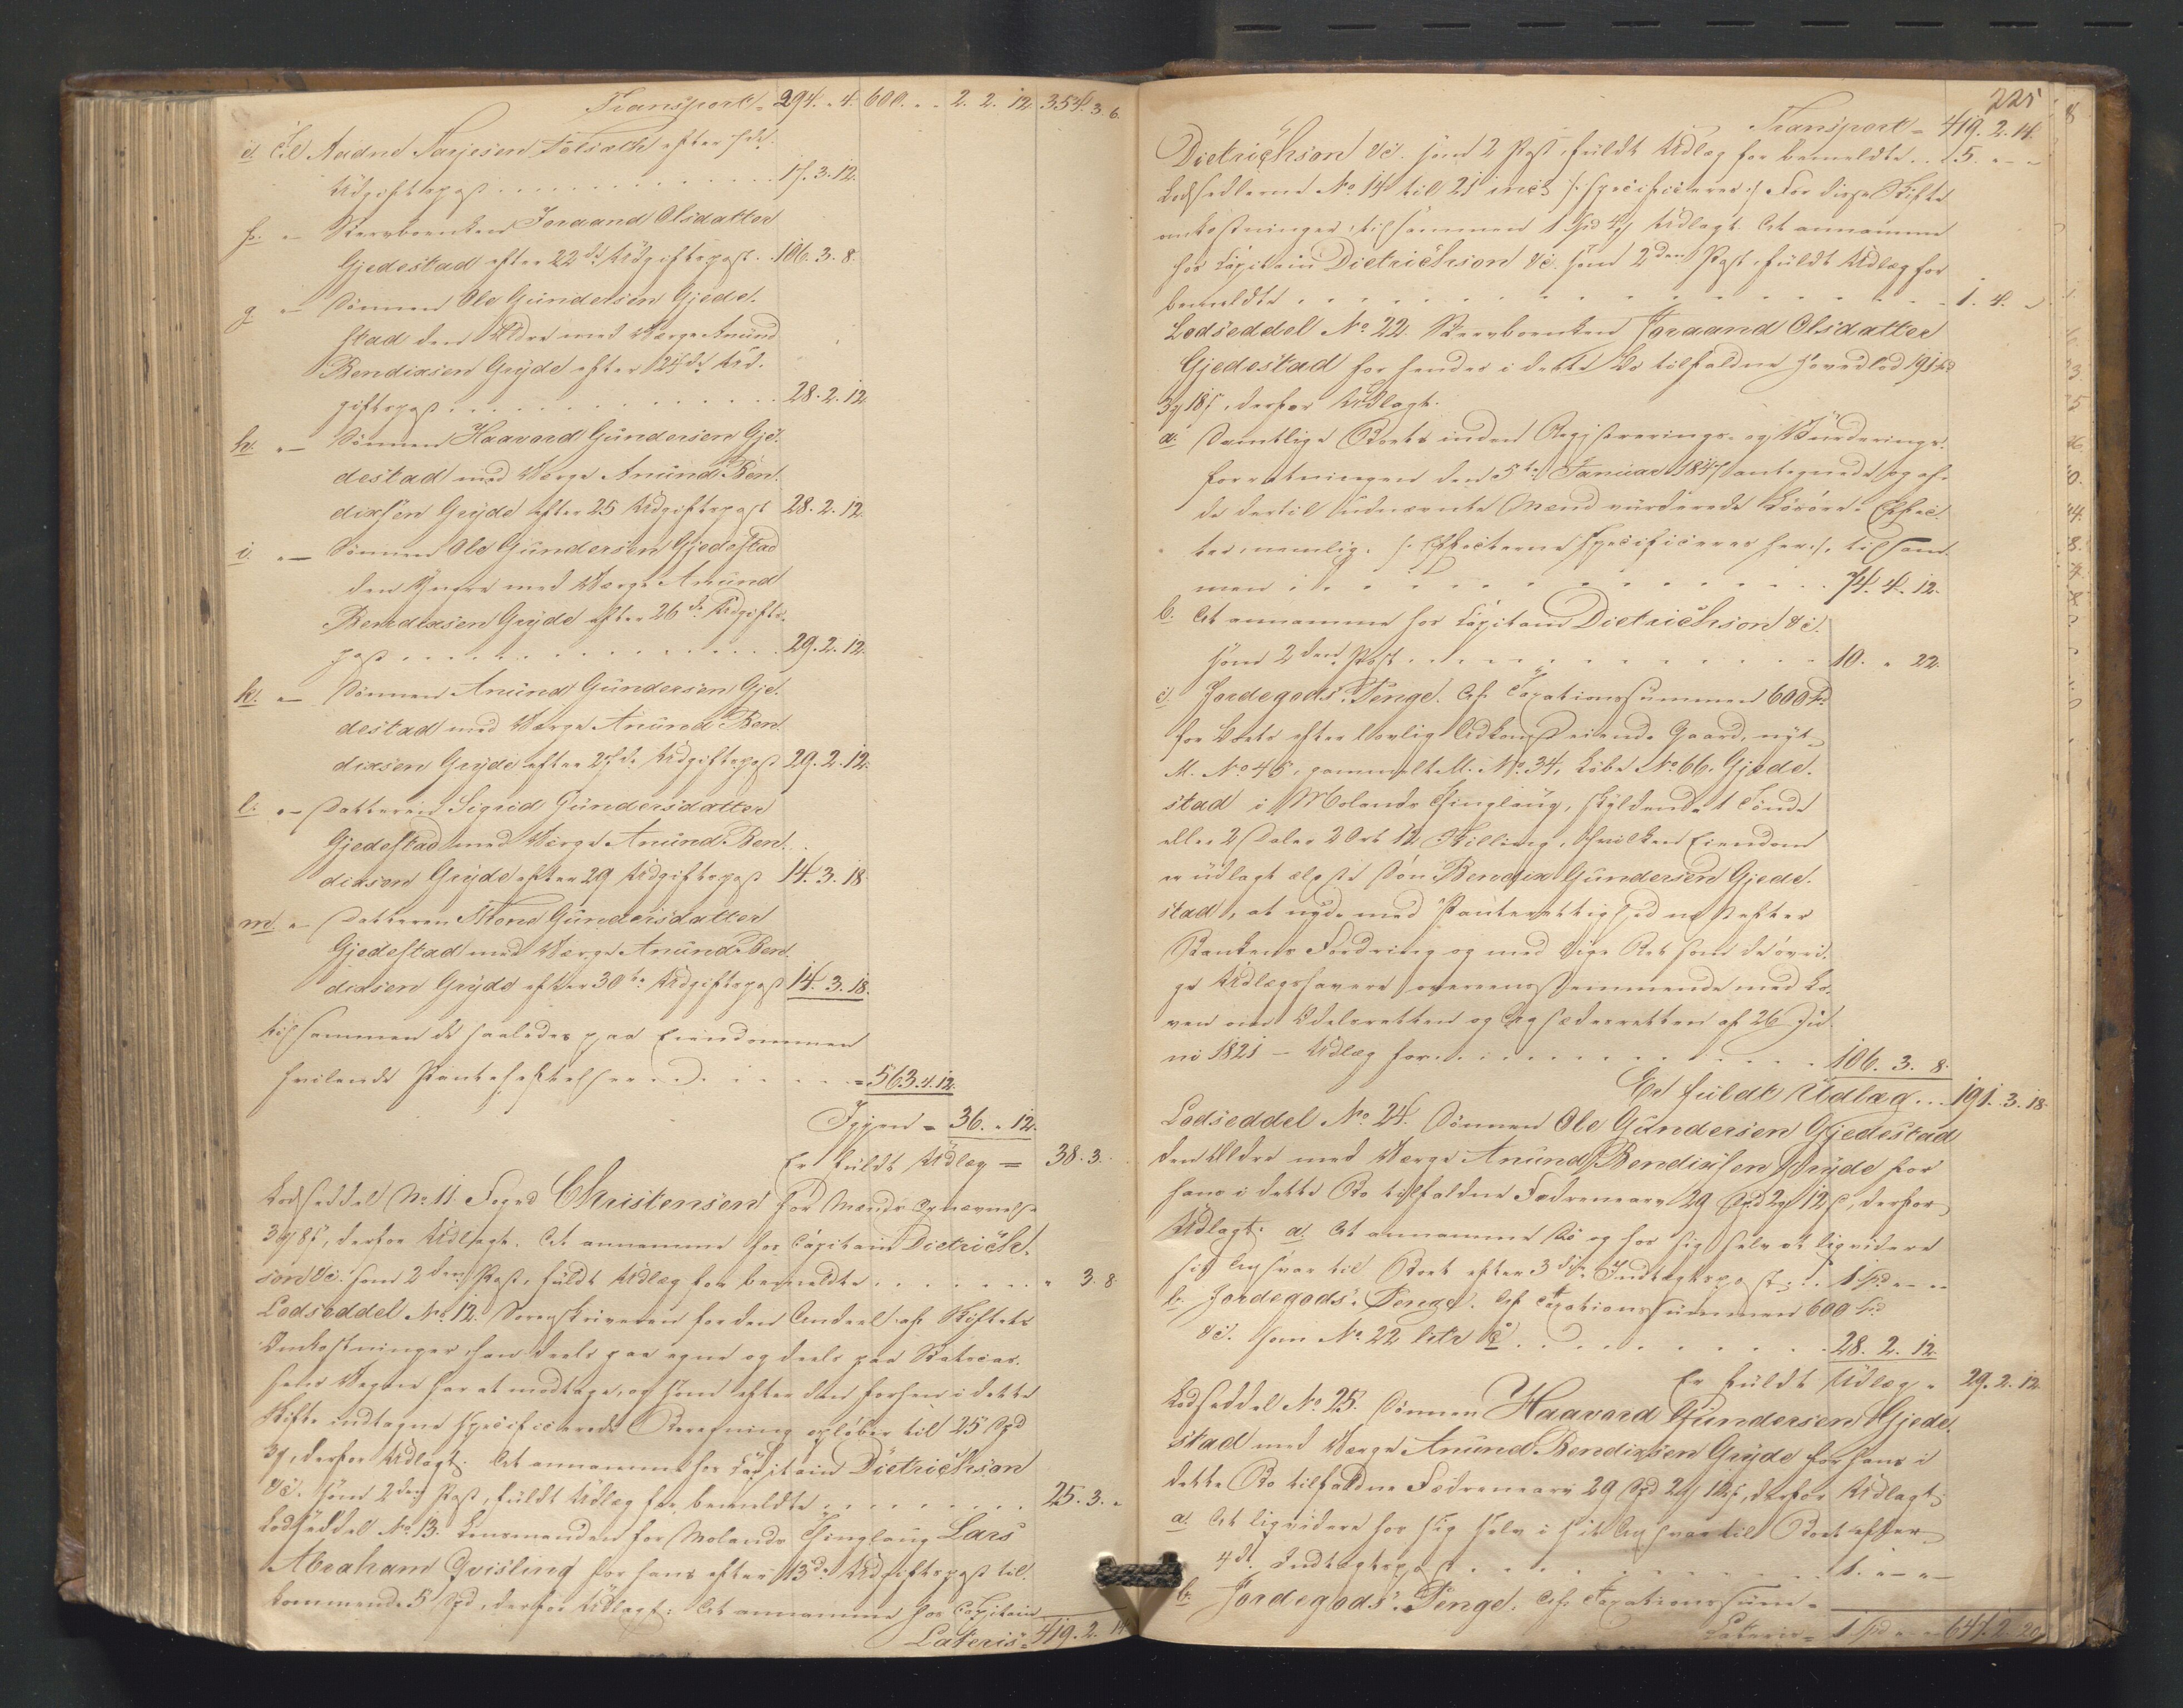 Transport = 294. " 4. 600. " " 2. 2. 12. 354. 3. 6.
e. Til Aadne Tarjesen Tolsæth efter
Udgiftspost . . . 17. 3. 12.
f. "— Stervboenken Joraand Olsdatter
Gjedestad efter 22de Udgiftspost . . 106. 3. 8.
g. "— Sønnen Ole Gundersen Gjede-
stad den Ældre med Værge Anund
Bendixsen Gryde efter 24de Ud-
giftspost . . . 28. 2. 12.
h. "— Sønnen Haavard Gundersen Gje-
destad med Værge Anund Ben-
dixsen Gryde efter 25 Udgiftspost 28. 2. 12.
i. "— Sønnen Ole Gundersen Gjedestad
den Yngre med Værge Anund
Bendixsen Gryde efter 26de Udgifts-
post . . . 29. 2. 12.
k. "— Sønnen Anund Gundersen Gje-
destad med Værge Anund Ben-
dixsen Gryde efter 27de Udgiftspost 29. 2. 12.
l. "— Datteren Sigrid Gundersdatter
Gjedestad med Værge Anund Ben-
dixsen Gryde efter 29 Udgiftspost 14. 3. 18
m. "— Datteren Thone Gundersdatter
Gjedestad med Værge Anund Ben-
dixsen Gryde efter 30te Udgiftspost 14. 3. 18.
tilsammen de saaledes paa Eiendommen
hvilende Pantehæftelser . . . = 563. 4. 12.
Igjen = 36. " 12.
Er fuldt Udlæg = 38. 3. "
Lodseddel No 11. Foged Christensen for Mænds Opnævnelse
3 8 s, derfor Udlagt. At annamme hos Capitain Dietrich-
son &c. som 2den Post, fuldt Udlæg for bemeldte . . . " 3. 8
Lodseddel No 12. Sorenskriveren for den Andeel af Skiftets
Omkostninger han deels paa egne og deels paa Statscas-
sens Vegne har at modtage, og som efter den forhen i dette
Skifte indtagne specificerede Beregning opløber til 25 Spd
3, derfor Udlagt: At annamme hos Capitain Dietrichson
&c. som 2den Post, fuldt Udlæg for bemeldte . . . 25. 3. "
Lodseddel No 13. Lensmanden for Molands Thinglaug Lars
Abraham Qvisling for hans efter 13de Udgiftspost til-
kommende 5 Spd, derfor Udlagt: At annamme hos Capitain
Lateris = 419. 2. 14
225
Transport = 419. 2. 14.
Dietrichson &c. som 2 Post, fuldt Udlæg for bemeldte . . 5. " "
Lodsedlerne No 14 til 21 incl /: specificeres :/ For disse Skifte
omkostninger tilsammen 1 Spd 4 Udlagt. At annamme
hos Capitain Dietrichson &c. som 2den Post, fuldt Udlæg for
bemeldte . . . 1. 4. "
Lodseddel No 22. Stervboenken Joraand Olsdatter
Gjedestad for hendes i dette Bo tilfaldne Hovedlod 191 Spd
3 18 s, derfor Udlagt.
a. Samtlige Boets under Registrerings- og Vurderings-
forretningen den 5te Januar 1847 antegnede og af
de dertil udnævnte Mænd vurderede Løsøre-Effec-
ter, nemlig: /: Effecterne specificeres her :/. tilsam-
men . . . 74. 4. 12.
b. At annamme hos Capitain Dietrichson &c.
som 2den Post . . . 10. " 22.
c. Jordegods-Penge. Af Taxationssummen 600 Spd
for Boets efter lovlig Adkomst eiende Gaard, nyt
M. No 45, gammelt M. No 34, Løbe No 66. Gjede-
stad i Molands Thinglaug, skyldende 1 Tønde
eller 2 Daler 2 Ort 12 Skilling, hvilken Eiendom
er udlagt ældste Søn Bendix Gundersen Gjede-
stad, at nyde med Panterettighed næst efter
Bankens Fordring og med lige Ret som de øvri-
ge Udlægshavere overeensstemmende med Lo-
ven om Odelsretten og Aasædesretten af 26 Ju-
ni 1821 — Udlæg for . . . 106. 3. 8.
Er fuldt Udlæg . . . 191. 3. 18.
Lodseddel No 24. Sønnen Ole Gundersen Gjedestad
den Ældre med Værge Anund Bendixsen Gryde for
hans i dette Bo tilfaldne Fædrenearv 29 Spd 2 12 s, derfor
Udlagt: a. At annamme og hos sig selv at liqvidere
sit Ansvar til Boet efter 3die Indtægtspost . . 1 Spd " "
b. Jordegods-Penge. Af Taxationssummen 600 Spd
&c. som No 22 litr c . . . 28. 2. 12.
Er fuldt Udlæg = 29. 2. 12
Lodseddel No 25. Sønnen Haavard Gundersen Gjede-
stad med Værge Anund Bendixsen Gryde for hans i
dette Bo tilfaldne Fædrenearv 29 Spd 2 12 s, derfor Udlagt:
a. At liqvidere hos sig selv i sit Ansvar til Boet efter
4de Indtægtspost . . . 1. " "
b. Jordegods-Penge. Af Taxationssum-
Lateris = 1 Spd " " 647. 2. 20